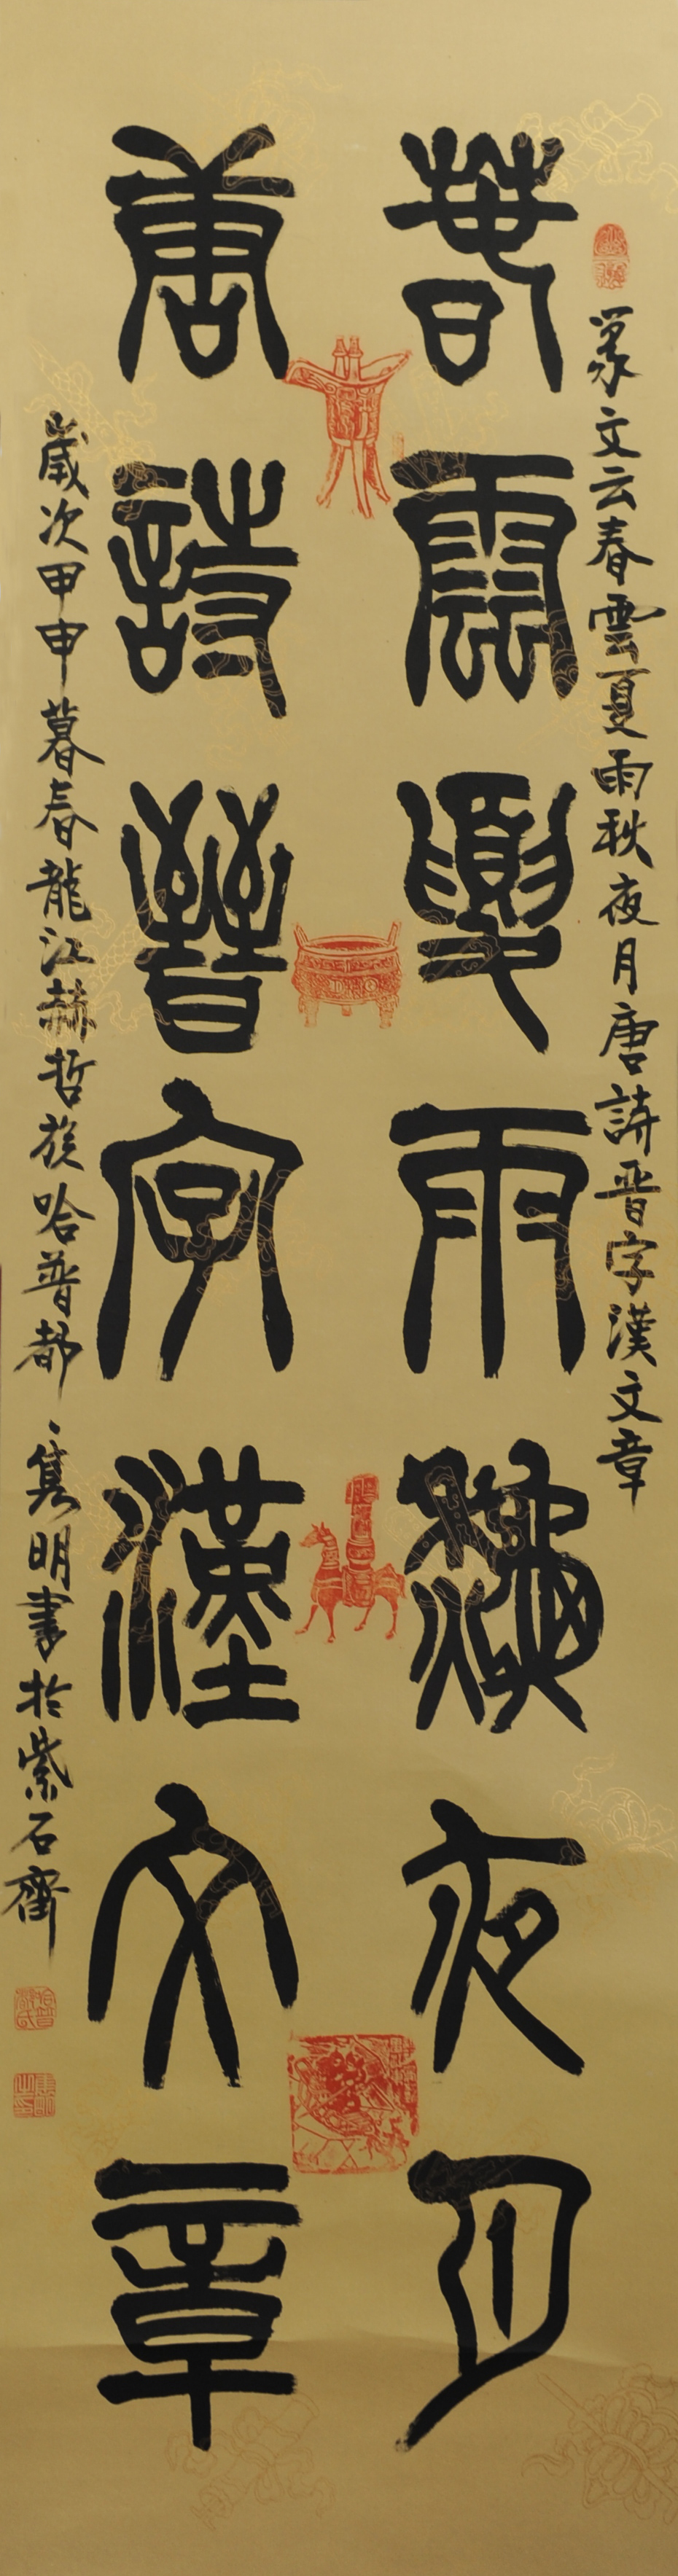 篆文云春雲夏雨秋夜月唐詩晉字漢文章
春雲夏雨秋夜月
唐詩晉字漢文章
歲次甲申暮春龍江赫哲族哈普都隽明書於紫石齋